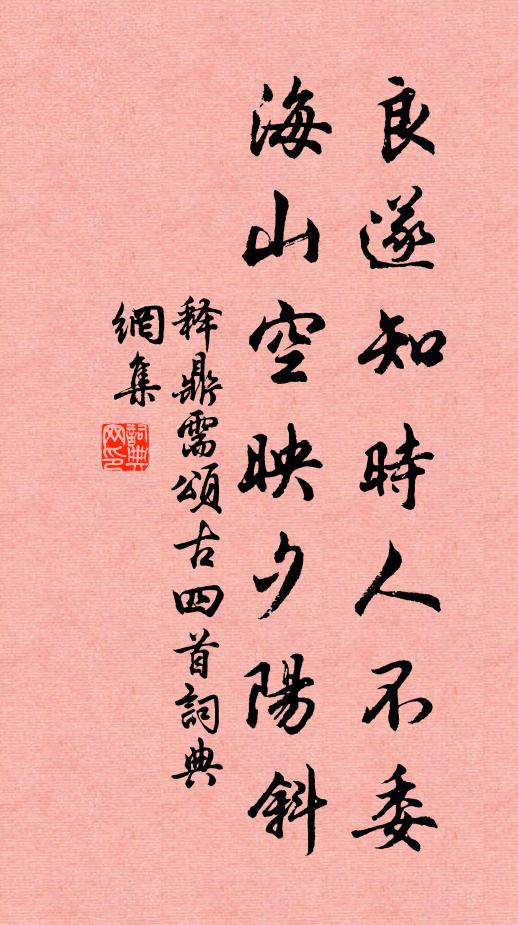 良遂知時人不委
海山空映夕陽斜
释鼎需頌古四首詞典
網集
詞典
网印